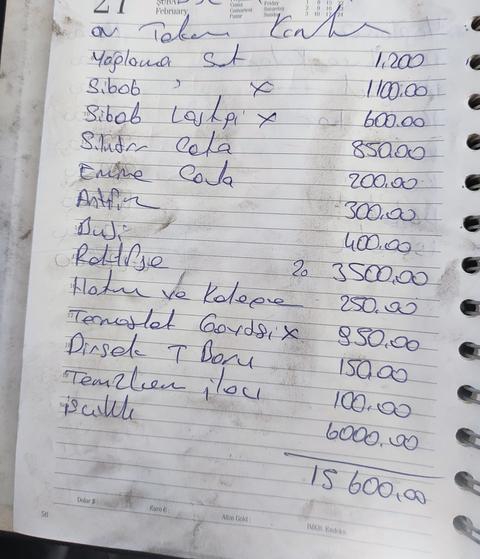 27
February
on Takım Conta
Yağlama Set 1.200
Sibob " x 1100.00
Sibob Lastği x 600.00
Silindir Cota 850.00
Emme Cota 200.00
Antifiriz 300.00
Buji 400.00
Raktifiye 20 3500.00
Hortum ve Kelepçe 250.00
Termostat Gövdsi x 950.00
Dirsek T Boru 150.00
Temizleme ilacı 100.00
işcilik 6000.00
15 600.00
Dolar $ Euro € Altın Gold IMKB Endeks
56